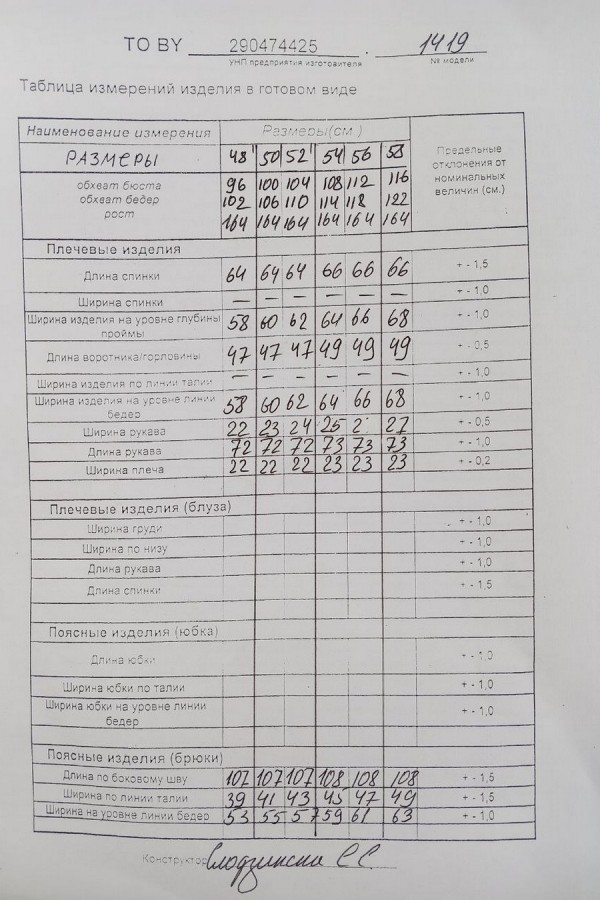 TO BY 290474425 . 1419
УНП предприятия изготовителя № модели
Таблица измерений изделия в готовом виде
Наименование измерения Размеры(см.) Предельные отклонения от номинальных величин (см.)
РАЗМЕРЫ 48 50 52 54 56 58
обхват бюста 96 100 104 108 112 116
обхват бедер 102 106 110 114 118 122
рост 164 164 164 164 164 164
Плечевые изделия
Длина спинки 64 64 64 66 66 66 + - 1,5
Ширина спинки — — — — — — + - 1,0
Ширина изделия на уровне глубины проймы 58 60 62 64 66 68 + - 1,0
Длина воротника/горловины 47 47 47 49 49 49 + - 0,5
Ширина изделия по линии талии — — — — — — + - 1,0
Ширина изделия на уровне линии бедер 58 60 62 64 66 68 + - 1,0
Ширина рукава 22 23 24 25 2 27 + - 0,5
Длина рукава 72 72 72 73 73 73 + - 1,0
Ширина плеча 22 22 22 23 23 23 + - 0,2
Плечевые изделия (блуза)
Ширина груди + - 1,0
Ширина по низу + - 1,0
Длина рукава + - 1,0
Длина спинки + - 1,5
Поясные изделия (юбка)
Длина юбки + - 1,0
Ширина юбки по талии + - 1,0
Ширина юбки на уровне линии бедер + - 1,0
Поясные изделия (брюки)
Длина по боковому шву 107 107 107 108 108 108 + - 1,5
Ширина по линии талии 39 41 43 45 47 49 + - 1,5
Ширина на уровне линии бедер 53 55 57 59 61 63 + - 1,0
Конструктор С.С.